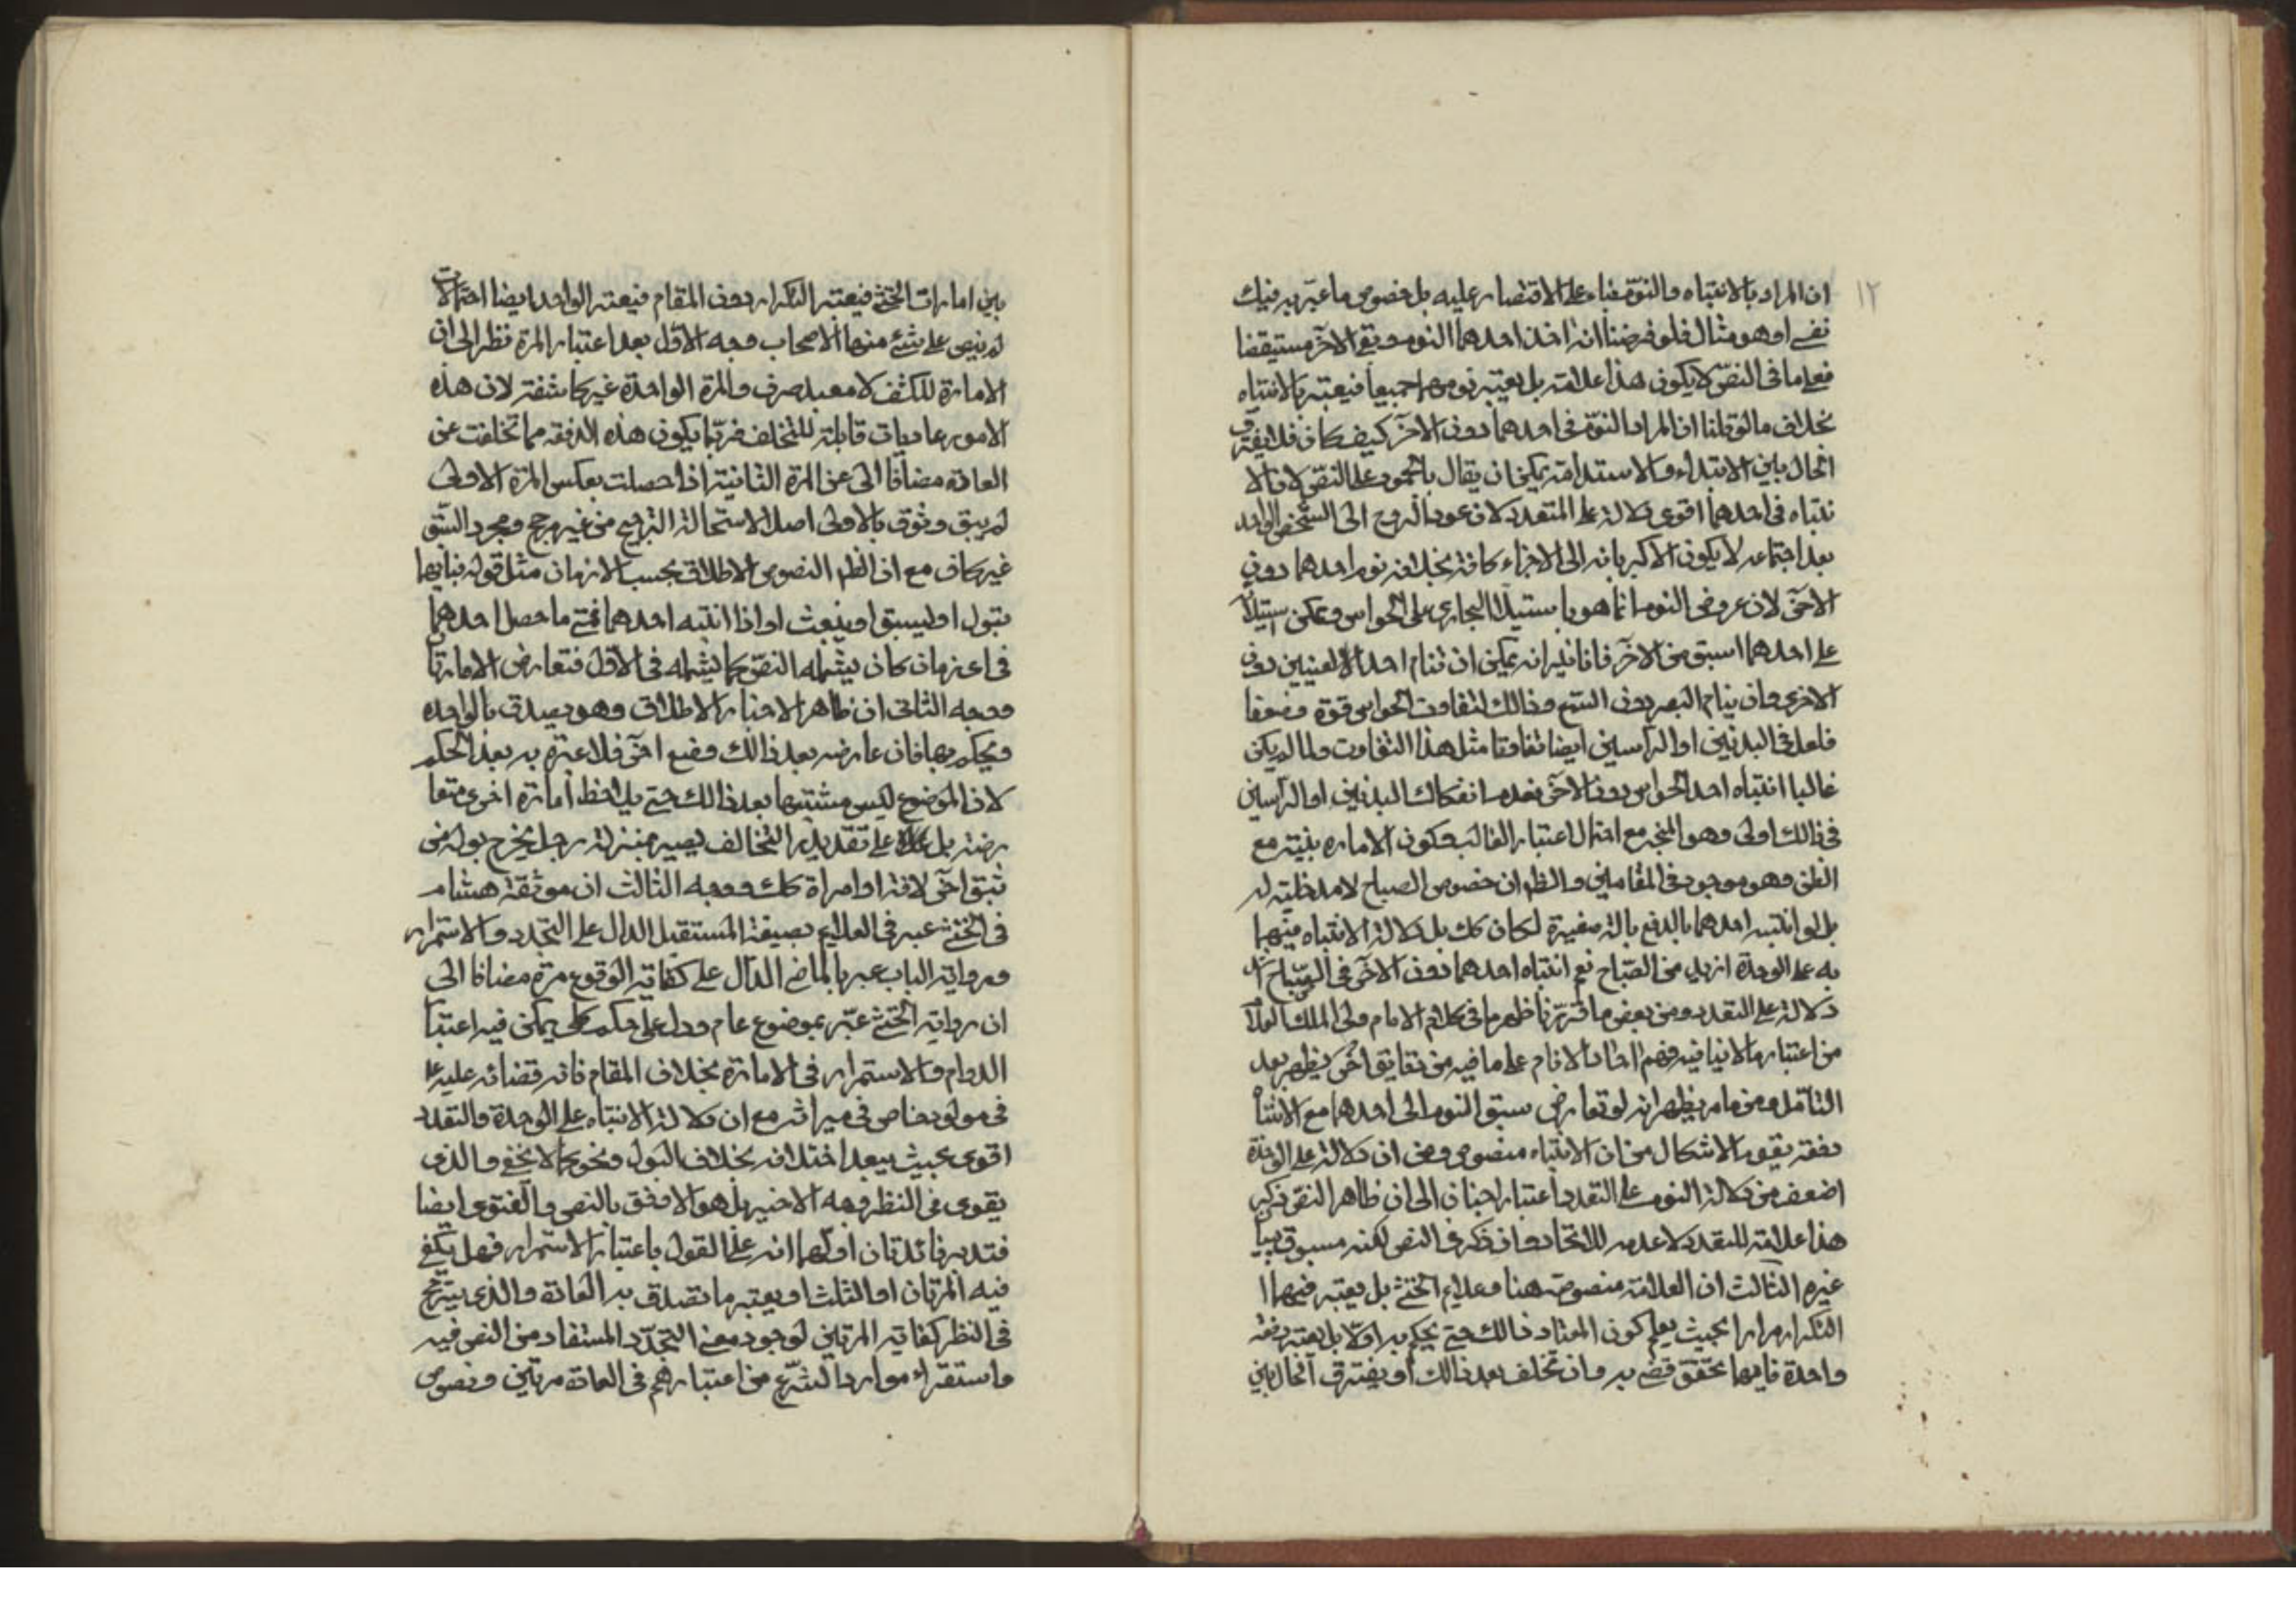 ١٢
ان المراد بالانتباه والنوم بناء على الاقتصار عليه بل خصوص ما عبر به فيك
نفسه او هو مثال فلو فرضنا انه اخذ احدهما النوم وبقى الآخر مستيقظا
فعلى ما فى النص لا يكون هذا علامة بل يعتبر نومهما جميعا فيعتبر بالانتباه
بخلاف ما لو قلنا ان المراد النوم فى احدهما دون الآخر كيف كان فلا يفترق
الحال بين الابتداء والاستدامة يمكن ان يقال بالجمود على النص لان الا
نتباه فى احدهما اقوى دلالة على المتعدد لان عود الروح الى الشخص الواحد
بعد اجتماعه لا يكون الا كبريائه الى الاجزاء كافة بخلاف نوم احدهما دون
الآخر لان عروض النوم انما هو باستيلاء البخار على الحواس ويمكن استيلاؤه
على احدهما اسبق من الآخر فانا نرى انه يمكن ان تنام احد العينين دون
الاخرى وان ينام البصر دون السمع وذالك لتفاوت الحواس قوة وضعفا
فلعل فى البدنين او الرأسين ايضا تفاوتا مثل هذا التفاوت ولما لم يكن
غالبا انتباه احد الحواس دون الآخر فعدم انفكاك البدنين او الرأسين
فى ذالك اولى وهو المتجه مع احتمال اعتبار الغالب وكون الامارة مبنية مع
الظن وهو موجود فى المقامين والظ ان خصوص الصياح لا مدخلية له
بل لو انتبه احدهما بالدفع بالة صغيرة لكان كك بل دلالة الانتباه منهما
به على الوحدة ازيد من الصياح نعم انتباه احدهما دون الآخر فى الصياح
دلالة على التعدد ومن بعض ما قررنا ظهر ما فى كلام الامام ولى الملك العلام
من اعتبار ما لا ينافيه فهم احاد الانام على ما فيه من دقايق اخر يظهر بعد
التأمل ومن ما مر يظهر انه لو تعارض سبق النوم الى احدهما مع الانتباه
دفعة يقوم الاشكال من ان الانتباه منصوص ومن ان دلالته على الوحدة
اضعف من دلالة النوم على التعدد اعتبارا الى ان ظاهر النص ذكر
هذا علامة للتعدد لا عدمه للاتحاد وان ذكر فى النص لكنه مسبوق ببيان
غيره الثالث ان العلامة منصوصة هنا وعلايم الخنثى بل يعتبر فيهما ا
التكرار مرارا بحيث يعلم كون المعتاد ذالك حتى يحكم به اولا بل يعتبر دفعة
واحدة فايهما تحقق قضى به وان تخلف بعد ذالك او يفترق الحال بين
بين امارات الخنثى فيعتبر التكرار دون المقام فيعتبر الواحد ايضا احتمالات
لم ينص على شئ منها الاصحاب وجه الاول بعد اعتبار المرة نظرا الى ان
الامارة للكشف لا معبد صرف والمرة الواحدة غير كاشفة لان هذه
الامور عاديات قابلة للتخلف فربما يكون هذه الدفعة مما تخلفت عن
العادة مضافا الى عن المرة الثانية اذا حصلت بعكس المرة الاولى
لم يبق وثوق بالاولى اصلا لاستحالة الترجيح من غير مرجح ومجرد السبق
غير كاف مع ان الظ النصوص الاطلاق بحسب الازمان مثل قوله فبايهما
يبول او ليسبق او ينبعث او اذا انتبه احدهما فمتى ما حصل احدهما
فى اى زمان كان يشمله النص كما يشمله فى الاول فتعارض الامارتان
ووجه الثانى ان ظاهر الاخبار الاطلاق وهو يصدق بالواحدة
ويحكم بها فان عارضه بعد ذالك وضع اخر فلا عبرة به بعد الحكم
لان الموضوع ليس مشتبها بعد ذالك حتى يلاحظ امارة اخرى متعا
رضة بل على تقدير التخالف يصير بمنزلة رجل يخرج بوله من
ثقب اخر لافة او امراة كك ووجه الثالث ان موثقة هشام
فى الخنثى عبر فى العلايم بصيغة المستقبل الدال على التجدد والاستمرار
ورواية الباب عبر بالماضى الدال على كفاية الوقوع مرة مضافا الى
ان رواية الخنثى عبر بموضوع عام ودل على حكم كلى يمكن فيه اعتبار
الدوام والاستمرار فى الامارة بخلاف المقام فانه قضائه عليه ع
فى مولود خاص فى ميراثه مع ان دلالة الانتباه على الوحدة والتعدد
اقوى بحيث يبعد اختلافه بخلاف البول ونحوه كما لا يخفى والذى
يقوى فى النظر وجه الاخير بل هو الاوفق بالنص والفتوى ايضا
فتدبر فائدتان اولهما انه على القول باعتبار الاستمرار فهل يكفى
فيه المرتان او الثلث او يعتبر ما تصدق به العادة والذى يترجح
فى النظر كفاية المرتين لوجود معنى التجدد المستفاد من النص فيه
واستقراء موارد الشرع من اعتبارهم فى العادة مرتين وخصوص